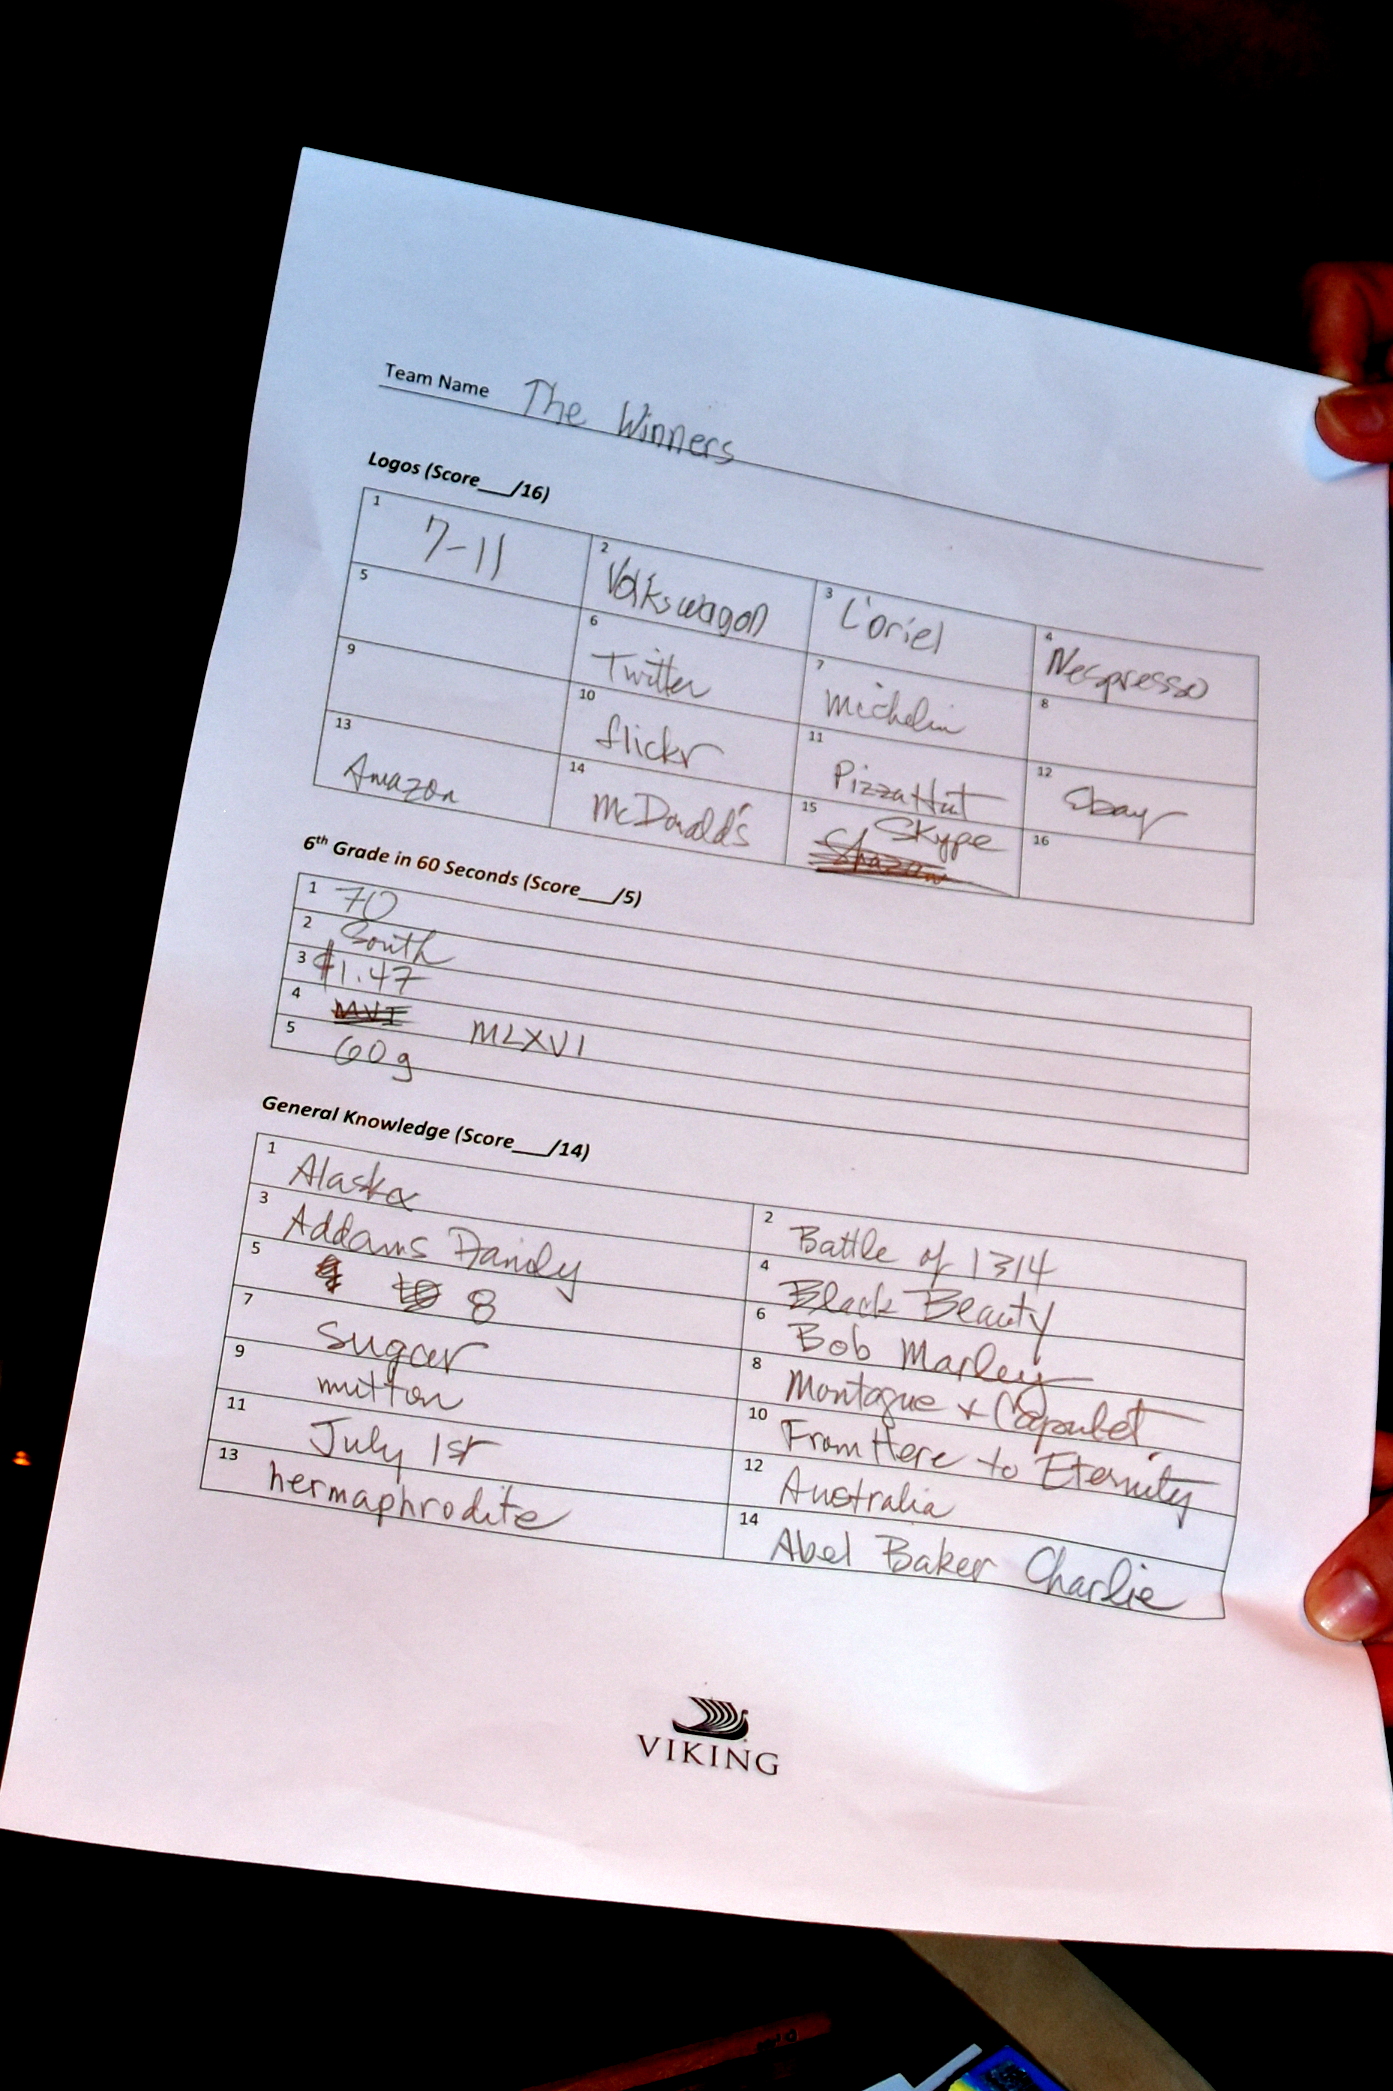 Team Name The Winners
Logos (Score___/16)
1 7-11 2 Volkswagon 3 L'oriel 4 Nespresso
5 6 Twitter 7 Michelin 8
9 10 flickr 11 Pizza Hut 12 Ebay
13 Amazon 14 McDonald's 15 Skype 16
6th Grade in 60 Seconds (Score___/5)
1 70
2 South
3 $1.47
4 MVI MLXVI
5 60g
General Knowledge (Score___/14)
1 Alaska 2 Battle of 1314
3 Addams Family 4 Black Beauty
5 8 6 Bob Marley
7 Sugar 8 Montague & Capulet
9 mutton 10 From Here to Eternity
11 July 1st 12 Australia
13 hermaphrodite 14 Abel Baker Charlie
VIKING